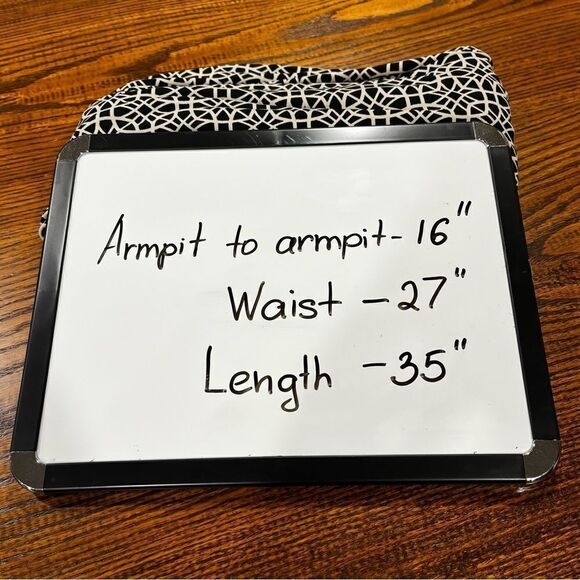 Armpit to armpit - 16"
Waist - 27"
Length - 35"